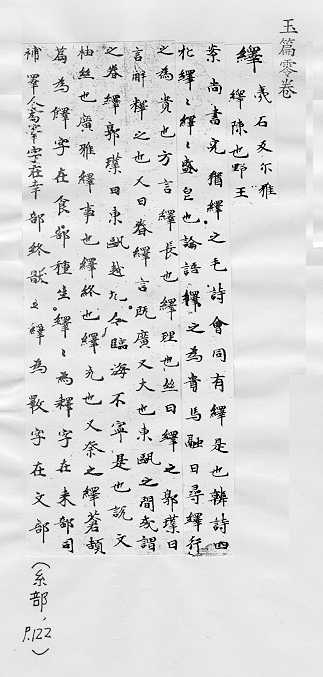 玉篇零卷
繹 石反尔雅
繹陳也野王
案尚書克猶繹之毛詩會同有繹是也韓詩四
牡繹〻〻盛皃也論語繹之為貴馬融曰尋繹行
之為貴也方言繹長也繹理也丝曰繹之郭璞曰
言解釋之也又曰眷繹言既廣又大也東甌之間或謂
之眷繹郭璞曰東甌越九今臨海不寧是也說文
柚絲也廣雅繹事也繹終也繹充也又祭之繹蒼頡
篇為字在食部種生繹〻為釋字在耒部司
補睪人為睪字在幸部終歝之繹為斁字在文部
(糸部, P.122)